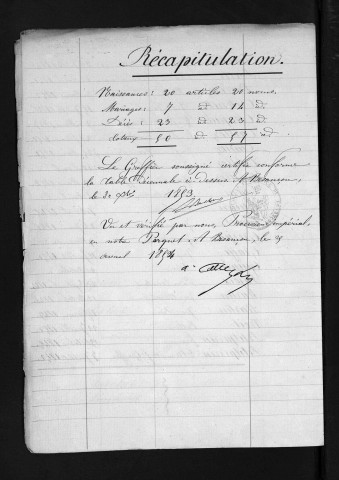 Récapitulation.
Naissances: 20 articles 20 noms.
Mariages: 7 id 14 id
Décès: 23 id 23 id
totaux 50 57 id
Le Greffier soussigné certifie conforme
la table décennale ci-dessus. A Besançon,
le 30 1853.
Vu et vérifié par nous, Procureur impérial,
en notre Parquet, A Besançon, le 29
1854